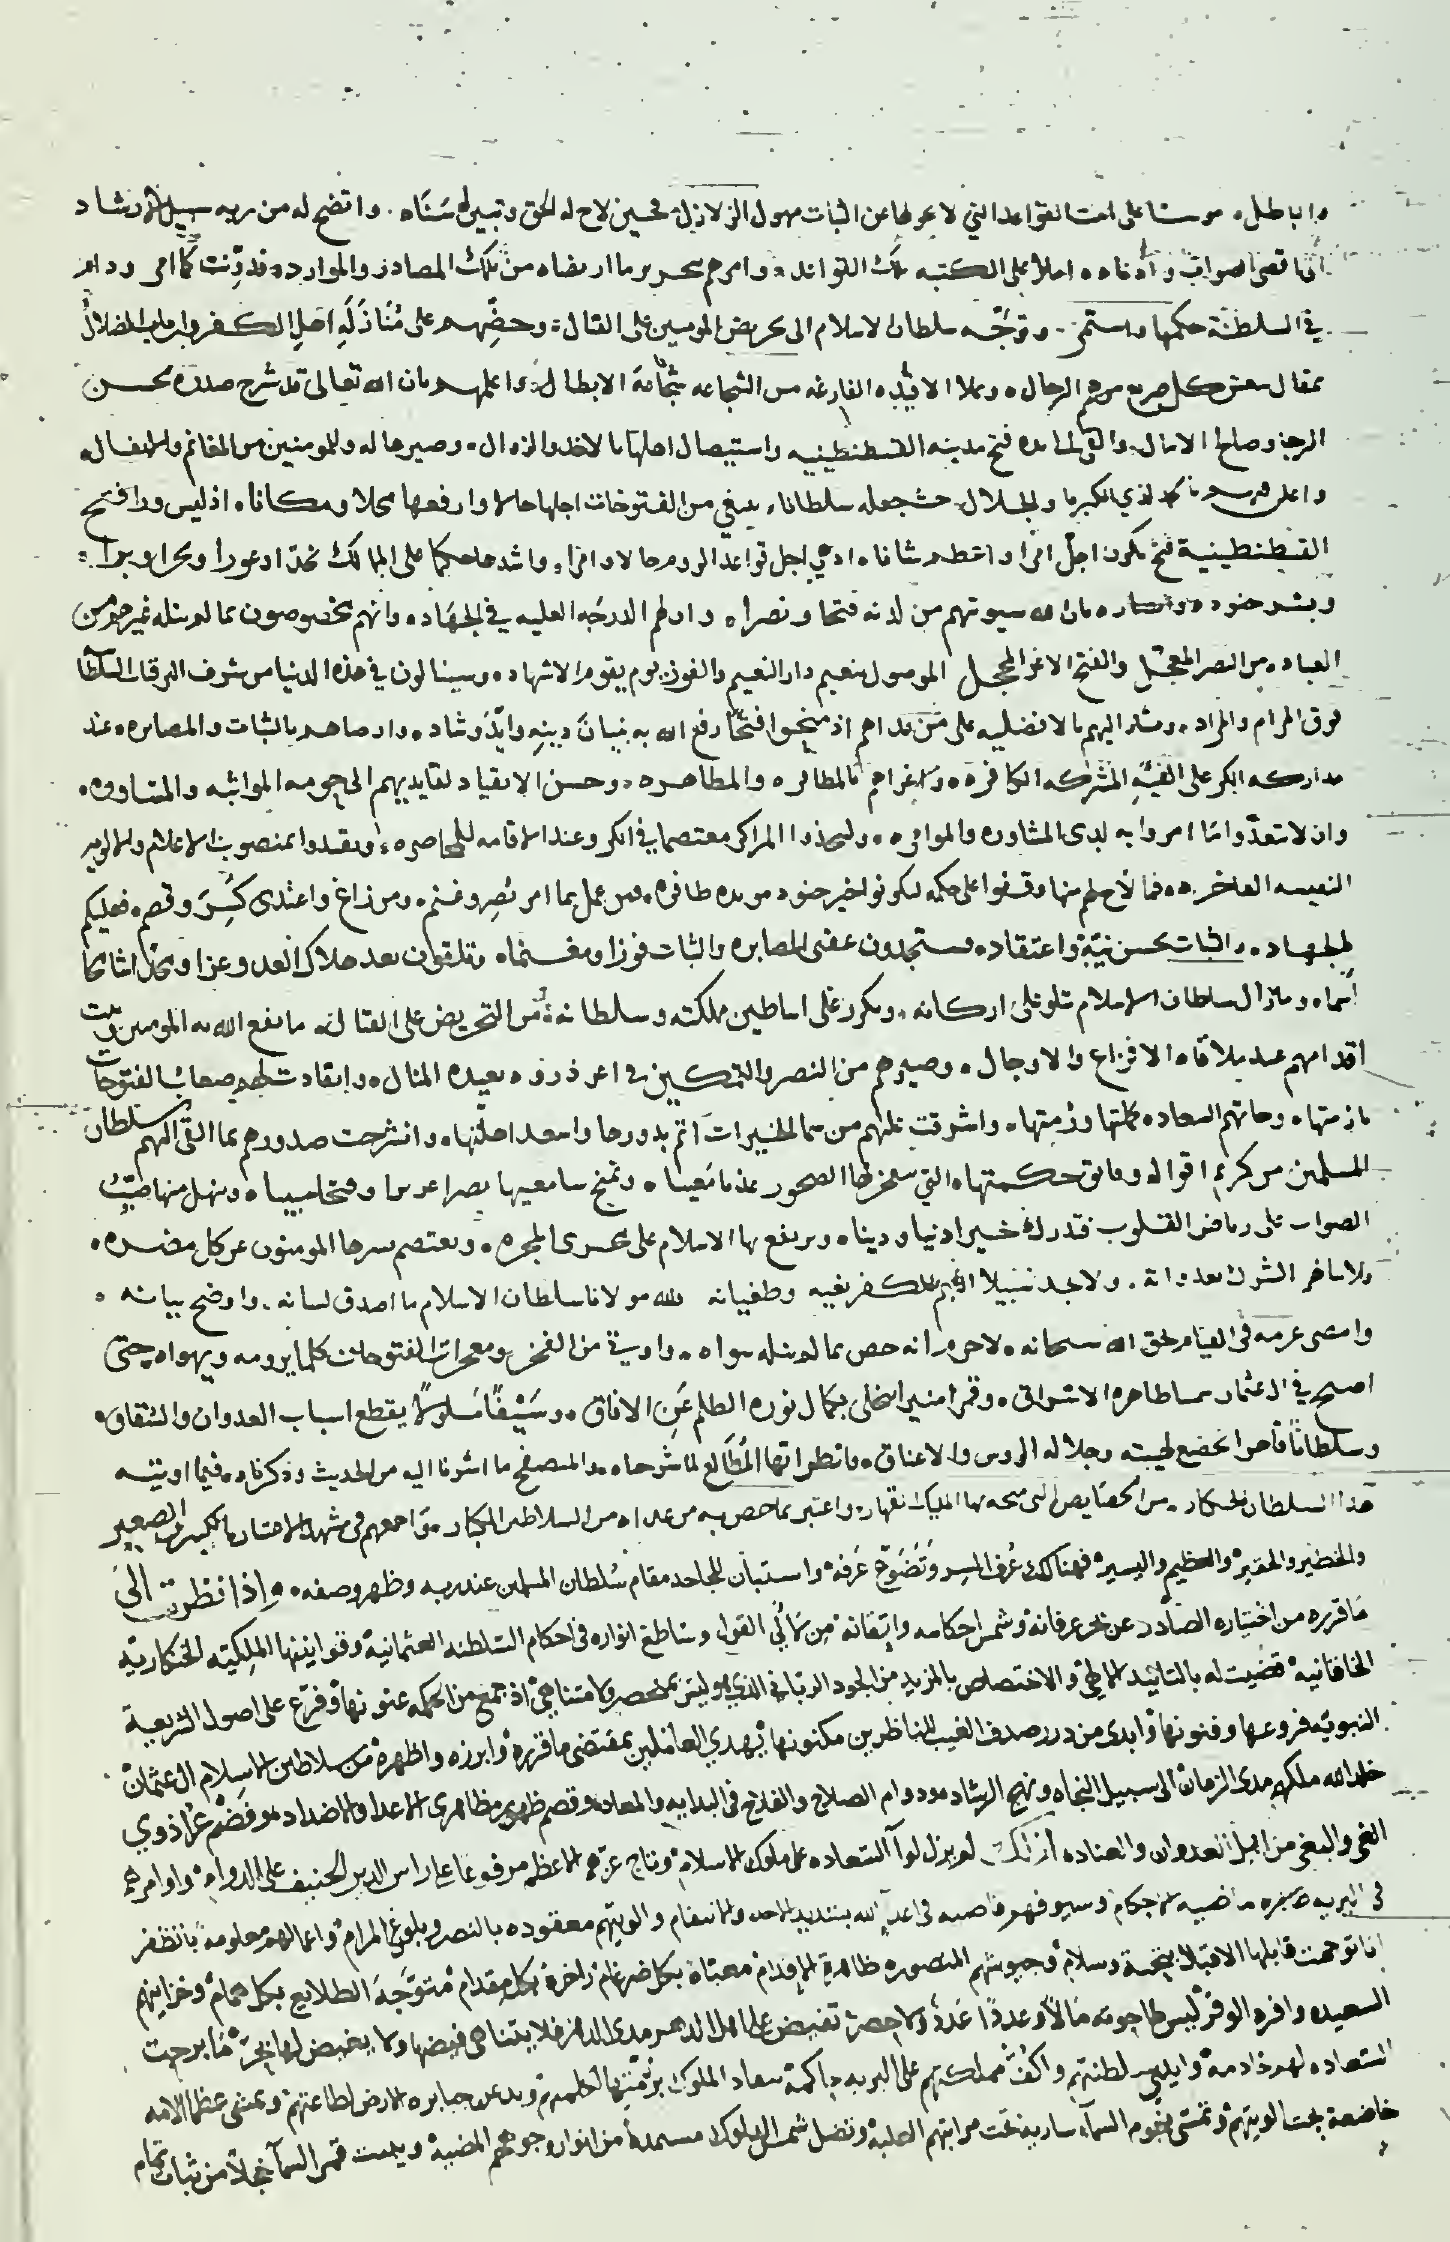 والباطل مؤسسا على اثبت القواعد التي لا يحركها عن الثبات مهول الزلازل فحين لاح له الحق وتبين له سناه واتضح له من ربه سبيل الارشاد
الصواب وادناه املا على الكتبه تلك الفوائد وامرهم بتحرير ما ارتضاه من تلك المصادر والموارد فدونت كما امر ودام
في السلطنة حكمها واستمر وتوجه سلطان الاسلام الى تحريض المومنين على القتال وحضهم على منازلة اهل الكفر وارباب الضلال
بمقال من الرجال وملا الافئده الفارغه من الشجاعه شجاعة الابطال واعلمهم بان الله تعالى قد شرح صدره بحسن
الرجا وصالح الامال والقى فتح مدينه القسطنطينيه واستيصال اهلها بالاخذ والزوال وصيرها له وللمومنين من المغانم والانفال
لذي الكبريا والجلال حيث جعله سلطانا يبتغي من الفتوحات اجلها حالا وارفعها محلا ومكانا اذ ليس ورا فتح
القسطنطينية فتح يكون اجل امرا واعظم شانا اذ هي اجل قواعد الروم حالا وامرا واشدها حكما على الممالك نجدا وغورا وبحرا وبرا
وبشر جنوده وانصاره بان الله سيوتيهم من لدنه فتحا ونصرا وان لهم الدرجه العليه في الجهاد وانهم مخصوصون بما لم ينله غيرهم من
العباد من النصر المعجل والفتح الاغر المحجل الموصول بنعيم دار النعيم والفوز يوم يقوم الاشهاد وسينالون في هذه الدنيا من شرف الترقيات
فوق المرام والمراد اليهم بالافضليه على من عداهم اذ منحوا فتحا رفع الله به بنيان دينه وايد وشاد واوصاهم بالثبات والمصابره عند
مداركه الكر على الفية المشركه الكافره واغراهم بالمظافره والمظاهره وحسن الانقياد لقايديهم الى حومه المواثبه والمساوره
وان لا يتعدوا ما امروا به لدى المشاوره والموامره وليتخذوا المراكز معتصما في الكر وعند الاقامه للمحاصره بمنصوب الاعلام
فما لاح لهم منها وقفوا على حكمه ليكونوا خير جنود مويده ظافره فمن عمل بما امر نصر وغنم ومن زاغ واعتدى كسر وقصم فعليكم
بالجهاد والثبات بحسن نية واعتقاد فستجدون عقبى المصابره والثبات فوزا ومغنما وتلقون بعد هلاك العدو عزا ومجدا شامخا
اسما وما زال سلطان الاسلام يتلو على اركانه ويكرر على اساطين مملكته وسلطانه من التحريض على القتال ما نفع الله به المومنين وثبت
اقدامهم عند ملاقاه الافزاع والاوجال وصيرهم من النصر والتمكين في اعز ذروه بعيده المنال وانقادت لهم صعاب الفتوحات
بازمتها وحاتهم السعاده بكليتها ورمتها واشرقت عليهم من سما الخيرات اتم بدورها واسعد اهلتها وانشرحت صدورهم بما القى اليهم سلطان
المسلمين من كريم اقواله وفايق حكمتها التي تنفجر لها الصخور عذبا معينا وتمنح سامعيها نصرا عزيزا وفتحا مبينا
الصواب على رياض القلوب فتدرك خيرا دنيا ودينا ويرتفع بها الاسلام على مجرى المجره ويعتصم بسرها المومنون عن كل مضره
ولا يجد سبيلا للكفر بغيه وطغيانه لله مولانا سلطان الاسلام ما اصدق لسانه واوضح بيانه
وامضى عزمه في القيام لحق الله سبحانه لا جرم انه خص بما لم ينله سواه واوتي من الفخر ومعجزات الفتوحات كلما يرومه ويهواه حتى
اصبح في ال عثمان شمسا ظاهره الاشراق وقمرا منيرا انجلى بكمال نوره الظلم عن الافاق وسيفا مسلولا يقطع اسباب العدوان والشقاق
وسلطانا قاهرا تخضع لهيبته وجلاله الروس والاعناق فانظر ايها المطالع لما شرحناه والمتصفح ما اشرنا اليه من الحديث وذكرناه فيما اوتيه
هذا السلطان الخنكار من الخصايص التي منحه بها المليك القهار واعتبر بما خص به من عداه من السلاطين الكبار واجمعهم في مشهد الاختبار بالكبير والصغير
والخطير والحقير والعظيم واليسير فهنالك عرف السر وتضوع عرفه واستبان للجاحد مقام سلطان المسلمين عند ربه وظهر وصفه واذا نظرت الى
ما قرره من اختياره الصادر عن بحر عرفانه وشمس احكامه واتقانه من لآلي القول وساطع انواره في احكام السلطنه العثمانية وقوانينها الملكيه الخنكارية
الخاقانية قضيت له بالتاييد الالهي والاختصاص بالمزيد من الجود الرباني الذي هو ليس بمنحصر ولا متناهي اذ جمع من الحكمه عيونها وفرع على اصول الشريعية
النبوية فروعها وفنونها وابدى من درر صدف الغيب للناظرين مكنونها يهدي العاملين بمقتضى ما قرره وابرزه واظهره من سلاطين الاسلام ال عثمان
خلد الله ملكهم مدى الزمان الى سبيل النجاه ونهج الرشاد ودوام الصلاح والفلاح في البدايه والمعاد وقصم ظهور مظاهرى الاعدا والاضداد عز ذوي
الغي والبغي من اهل العدوان والعناد لم يزل لوآ السعاده على ملوك الاسلام وتاج عزهم الاعظم مرفوعا على راس الدين الحنيف على الدوام واوامرهم
في البريه ماضيه الاحكام وسيوفهم قاضيه في اعدا الله بشديد الاخذ والانتقام والويتهم معقوده بالنصر وبلوغ المرام واعمالهم معلومة بالظفر
اذا توجهت قابلها الاقبال بتحية وسلام وجيوشهم المنصوره ظاهرة الاقدام معباة بكل ضرغام زاخرة بكل مقدام متوجة الطلايع بكل همام وخزاينهم
السعيده وافره الوفر ليس لما حوته مالا وعددا عد ولا حصر تفيض على اهل الدهر مدى الدهر فلا يتناهى فيضها ولا يغيض لها بحر ما برحت
السعاده لهم خادمة وايدي سلطنتهم واكف مملكتهم على البريه حاكمة الملوك جبابره الارض لطاعتهم وتمشي عظما الامه
خاضعة تحت الويتهم وتمسي نجوم السماء ساريه تحت مراتبهم العلية وتظل شمس الملوك مستمدة من انوار وجوههم المضية ويبيت قمر السمآ خجلا من ثبات تمام